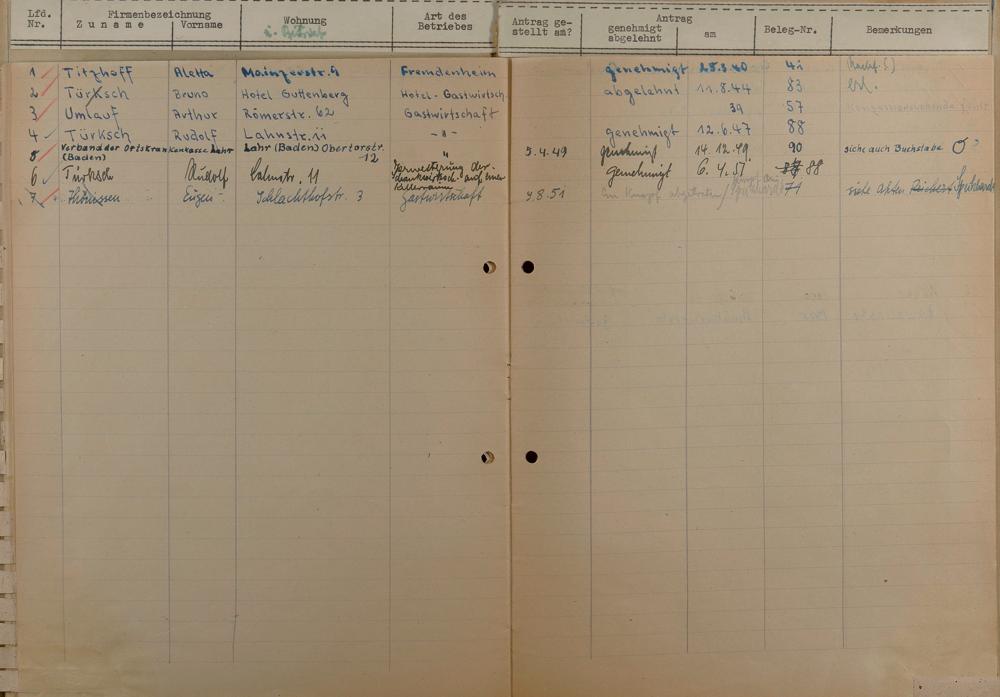 Lfd. Nr. Firmenbezeichnung Zuname Vorname Wohnung u. Betrieb Art des Betriebes Antrag gestellt am? Antrag genehmigt abgelehnt am Beleg-Nr. Bemerkungen
1 Titzhoff Aletta Mainzerstr. 9 Fremdenheim genehmigt 40
2 Türksch Bruno Hotel Guttenberg Hotel-Gastwirtsch abgelehnt 11.8.44 83 erl.
3 Umlauf Arthur Römerstr. 62 Gastwirtschaft 39 57
4 Türksch Rudolf Lahnstr. 11 -"- genehmigt 12.6.47 88
5 Verband der Ortskrankenkasse Lahr (Baden) Lahr (Baden) Obertorstr. 12 " 5.4.49 genehmigt 14.12.49. 90 siehe auch Buchstabe O
6 Türksch Rudolf 11 Erweiterung der Schankwirtsch. auf einen Kellerraum Genehmigt 6.4.51 88
7 Eugen Schlachthofstr. 3 Gastwirtschaft 9.8.51 71 siehe Akten